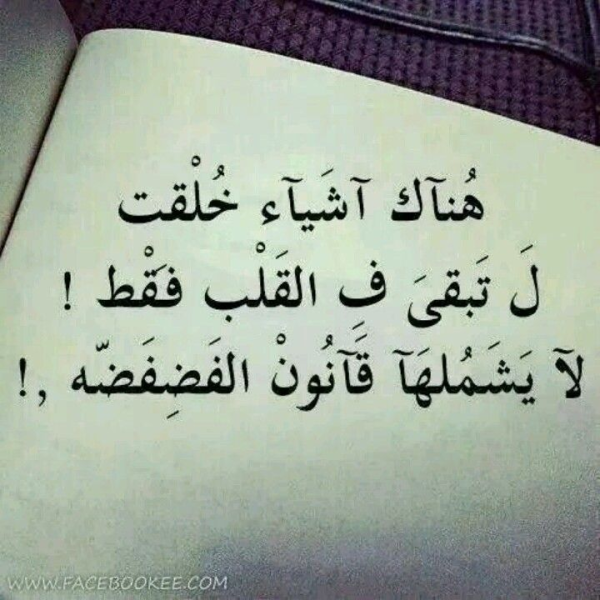 هُنآك آشَيآء خُلْقت
لَ تَبقىَ فِ القَلْب فقَْط !
لآ يَشَمُلهَآ قَآنُونْ الفَضِفَضّه ,!
WWW.FACEBOOKEE.COM